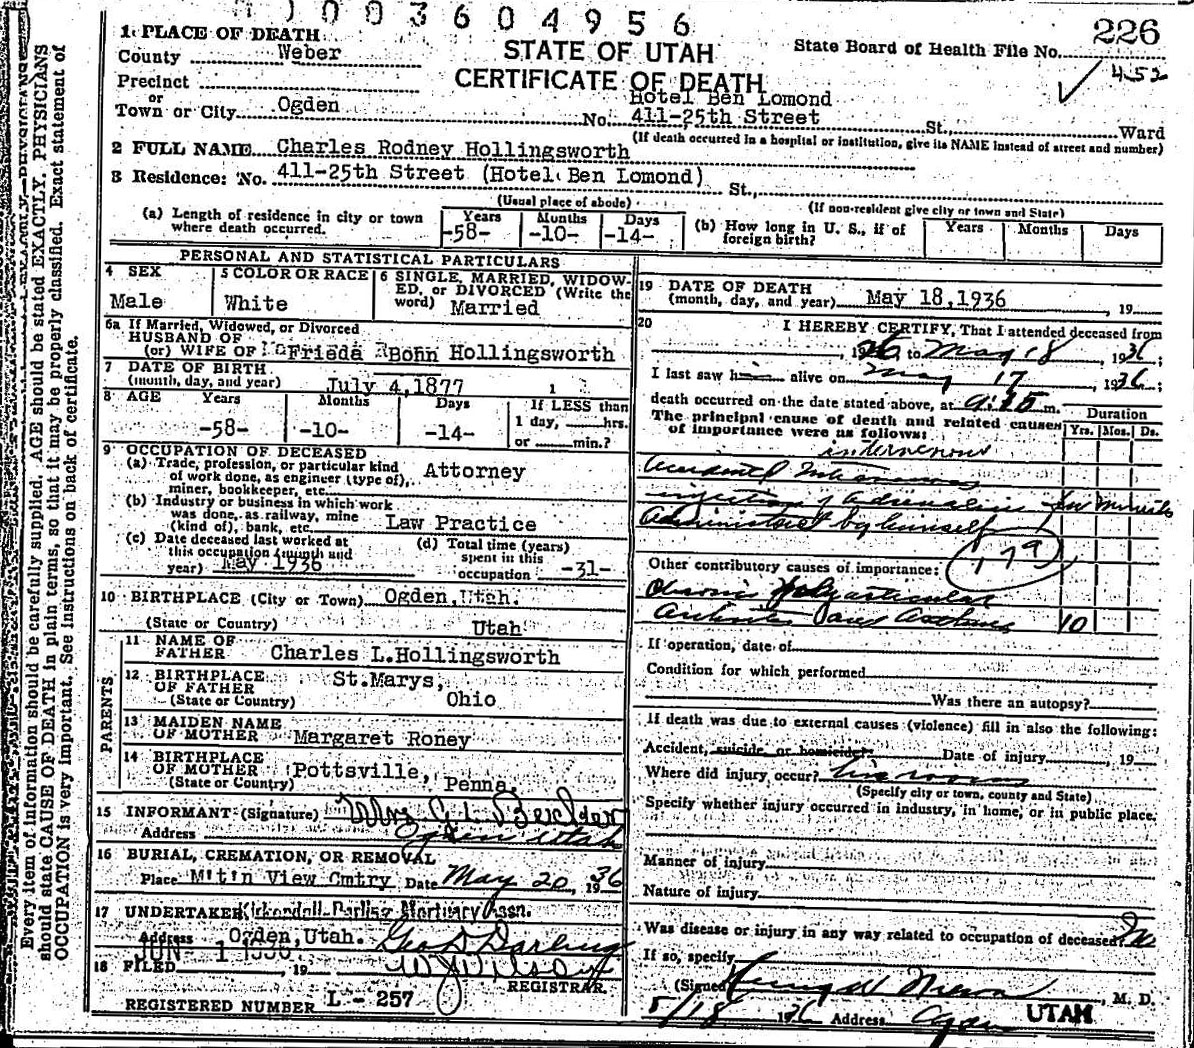 1003604956
226
1. PLACE OF DEATH
STATE OF UTAH
State Board of Health File No.
County Weber
452
CERTIFICATE OF DEATH
Precinct
or
Hotel Ben Lomond
Town or City Ogden No. 411-25th Street St., Ward
(If death occurred in a hospital or institution, give its NAME instead of street and number)
2 FULL NAME Charles Rodney Hollingsworth
3 Residence: No. 411-25th Street (Hotel Ben Lomond) St.,
(Usual place of abode) (If non-resident give city or town and State)
(a) Length of residence in city or town where death occurred. Years -58- Months -10- Days -14-
(b) How long in U. S., if of foreign birth? Years Months Days
PERSONAL AND STATISTICAL PARTICULARS
4 SEX Male
5 COLOR OR RACE White
6 SINGLE, MARRIED, WIDOWED, or DIVORCED (Write the word) Married
6a If Married, Widowed, or Divorced
HUSBAND OF
(or) WIFE OF Frieda Bohn Hollingsworth
7 DATE OF BIRTH
(month, day, and year) July 4,1877 1
8 AGE Years Months Days If LESS than
-58- -10- -14- 1 day, hrs.
or min.?
9 OCCUPATION OF DECEASED
(a) Trade, profession, or particular kind of work done, as engineer (type of), miner, bookkeeper, etc. Attorney
(b) Industry or business in which work was done, as railway, mine (kind of), bank, etc. Law Practice
(c) Date deceased last worked at this occupation (month and year) May 1936
(d) Total time (years) spent in this occupation -31-
10 BIRTHPLACE (City or Town) Ogden, Utah.
(State or Country) Utah
PARENTS
11 NAME OF FATHER Charles L.Hollingsworth
12 BIRTHPLACE OF FATHER St.Marys,
(State or Country) Ohio
13 MAIDEN NAME OF MOTHER Margaret Roney
14 BIRTHPLACE OF MOTHER Pottsville,
(State or Country) Penna.
15 INFORMANT (Signature) Mrs G. L. Beckler
Address Ogden Utah
16 BURIAL, CREMATION, OR REMOVAL
Place M't'n View Cmtry Date May 20, 1936
17 UNDERTAKER Kirkendall-Darling Mortuary Assn.
Address Ogden,Utah. Geo D Darling
JUN - 1 1936
18 FILED , 19
REGISTRAR
REGISTERED NUMBER L - 257
19 DATE OF DEATH
(month, day, and year) May 18,1936 , 19
20 I HEREBY CERTIFY, That I attended deceased from
, 1926, to May 18, 1936;
I last saw him alive on May 17, 1936;
death occurred on the date stated above, at 9:15 m.
The principal cause of death and related causes of importance were as follows:
Duration
Yrs. Mos. Ds.
intravenous
Accidental
injection of Adrenalin few minutes
Administered by himself
179
Other contributory causes of importance:
Chronic Polyarticular
Arthritis and Asthma 10
If operation, date of
Condition for which performed
Was there an autopsy?
If death was due to external causes (violence) fill in also the following:
Accident, suicide, or homicide? Date of injury , 19
Where did injury occur? his room
(Specify city or town, county and State)
Specify whether injury occurred in industry, in home, or in public place.
Manner of injury
Nature of injury
Was disease or injury in any way related to occupation of deceased? No
If so, specify
(Signed) , M. D.
5/18 1936 Address Ogden UTAH
Every item of information should be carefully supplied. AGE should be stated EXACTLY. PHYSICIANS
should state CAUSE OF DEATH in plain terms, so that it may be properly classified. Exact statement of
OCCUPATION is very important. See instructions on back of certificate.